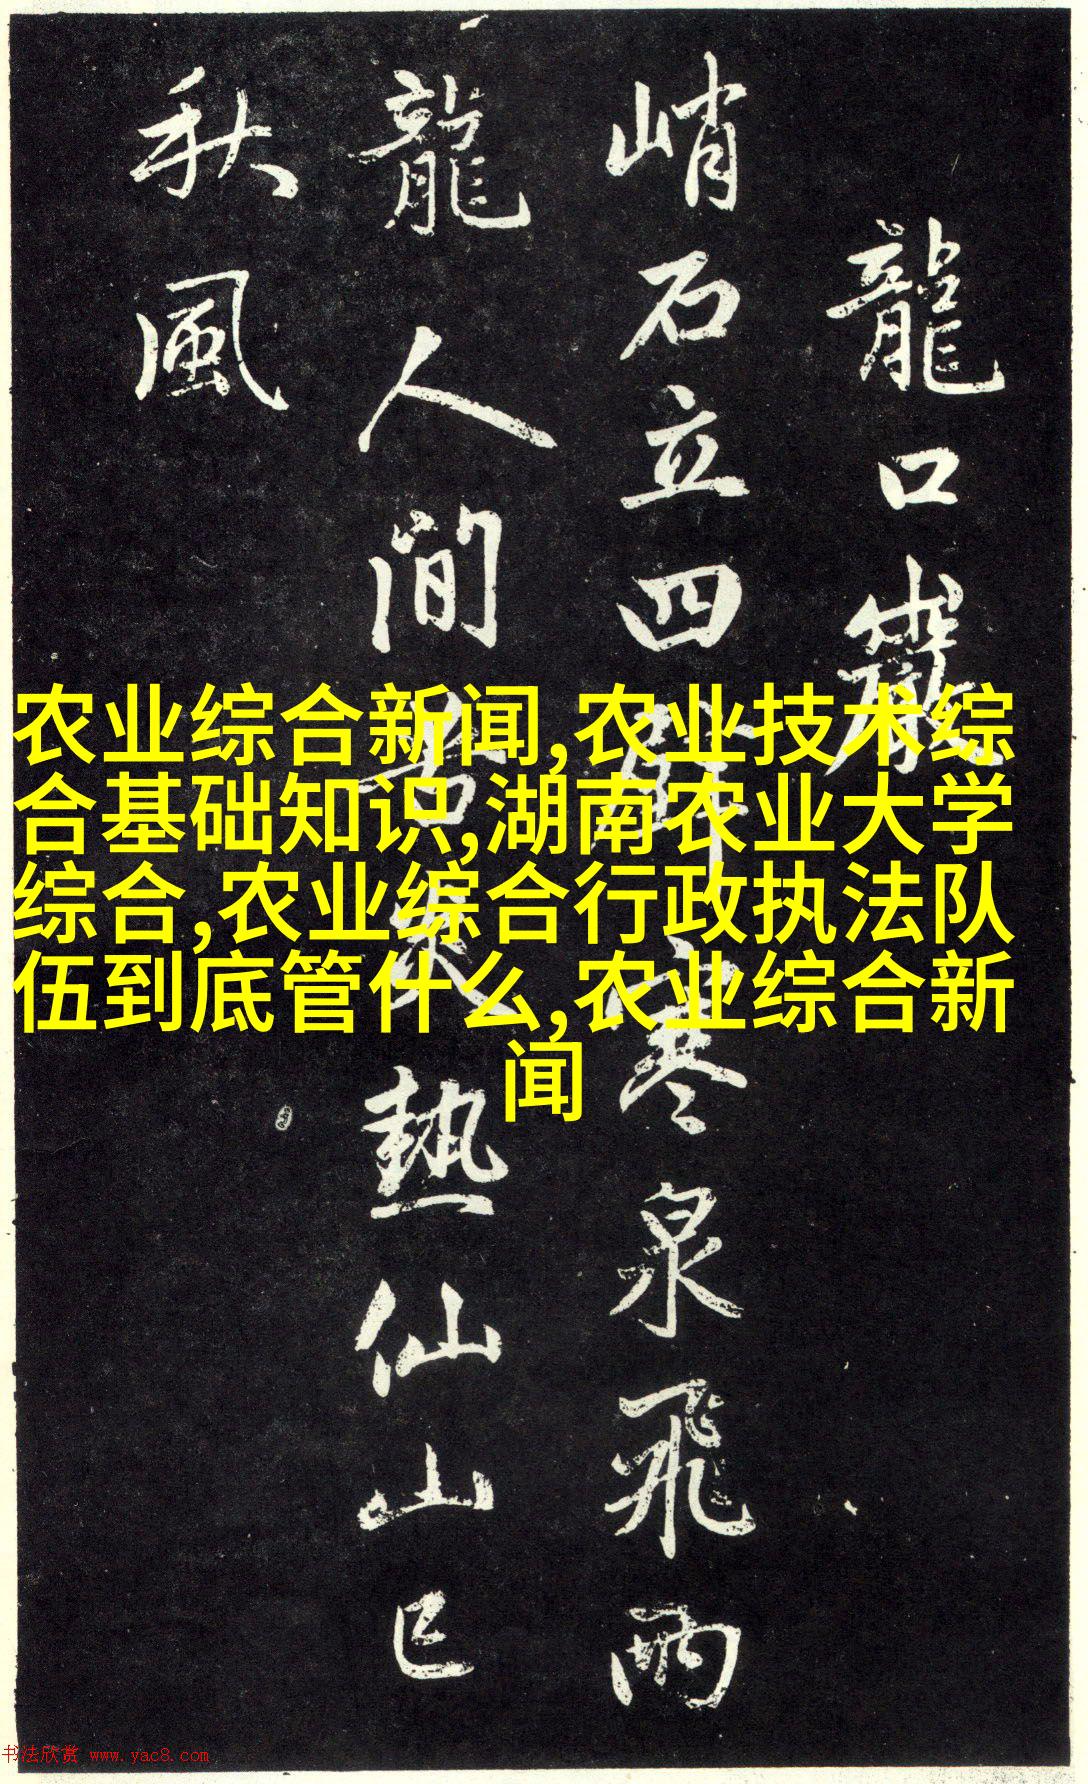 龍口巖
峭石立四 寒泉飛兩
龍人間苦炎熱仙山已
秋風
农业综合新闻,农业技术综
合基础知识,湖南农业大学
综合,农业综合行政执法队
伍到底管什么,农业综合新
闻
书法欣赏 www.yac8.com